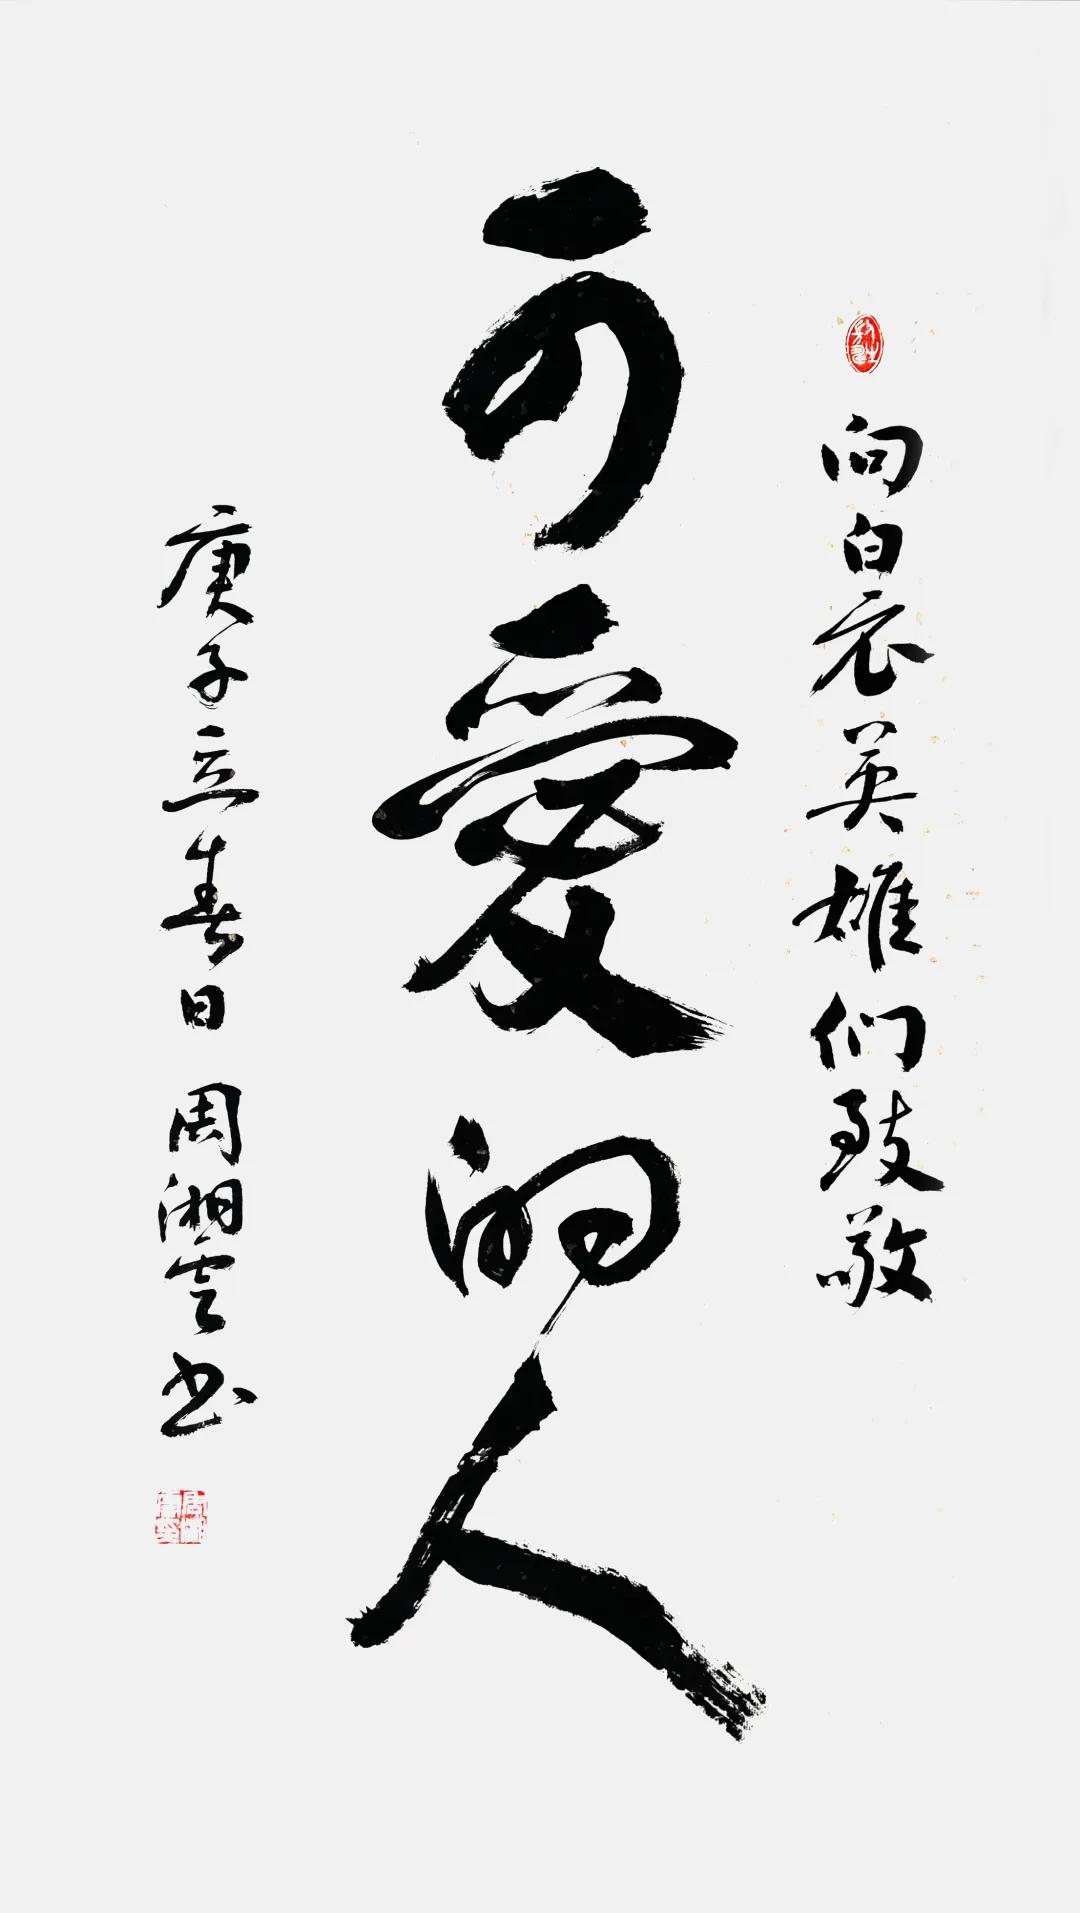 向白衣英雄们致敬
可愛的人
庚子立春日 周湘雲书